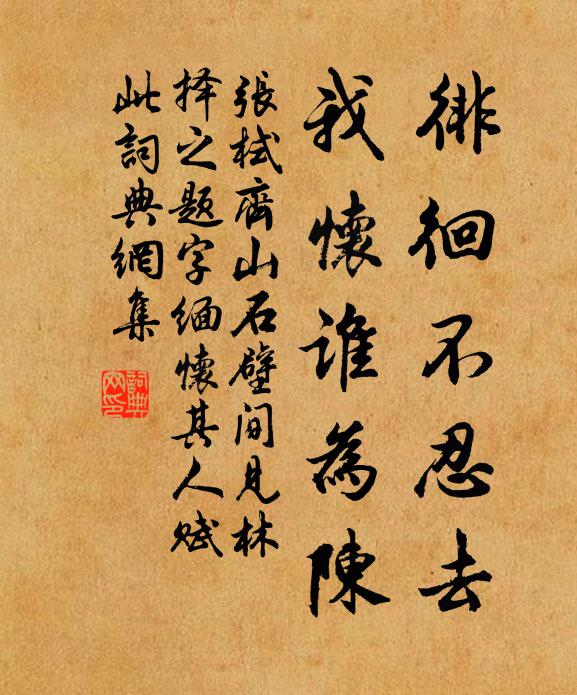 徘徊不忍去
我懷誰為陳
張栻齊山石壁間見林
择之题字缅懷其人赋
此詞典網集
詞典
网印